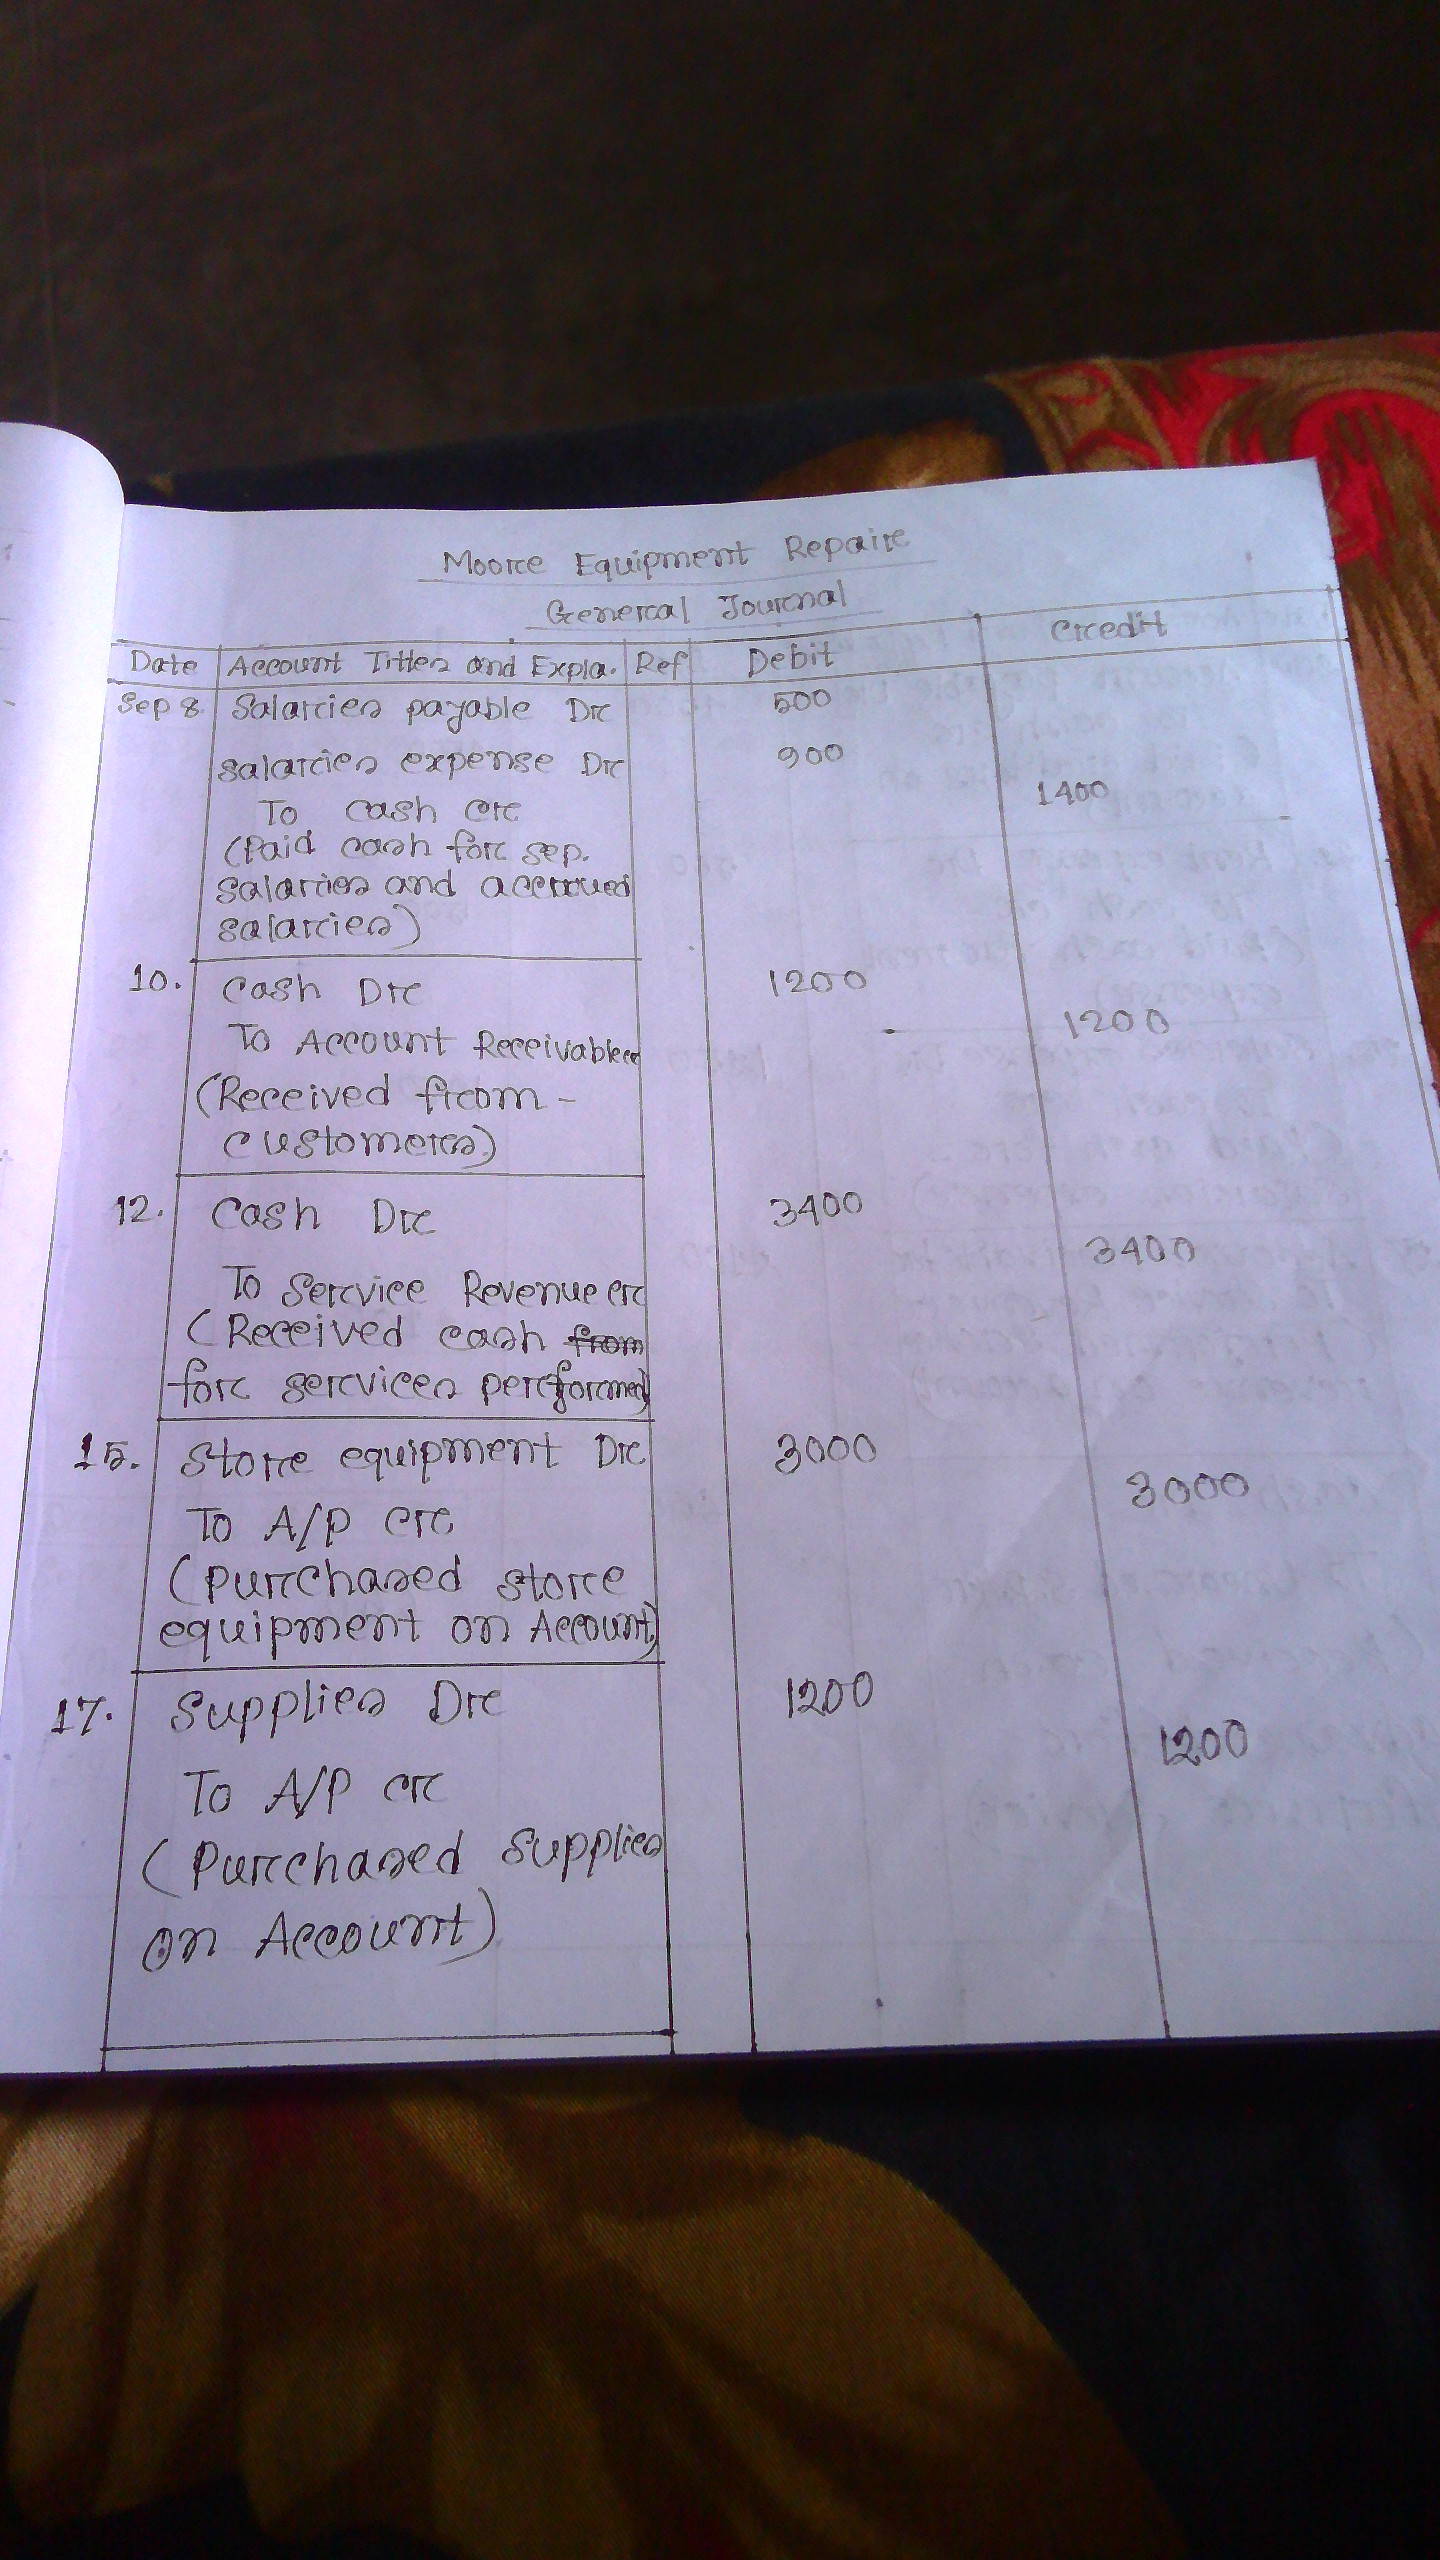 Moore Equipment Repair
General Journal
Date Account Titles and Expla. Ref Debit Credit
Sep 8. Salaries payable Dr 500
Salaries expense Dr 900
To Cash Cr 1400
(Paid cash for sep.
salaries and accrued
salaries)
10. Cash Dr 1200
To Account Receivable cr 1200
(Received from -
customers)
12. Cash Dr 3400
To Service Revenue cr 3400
(Received cash from
for services performed)
15. Store equipment Dr 3000
To A/P cr 3000
(Purchased store
equipment on Account)
17. Supplies Dr 1200
To A/P cr 1200
(Purchased supplies
on Account)